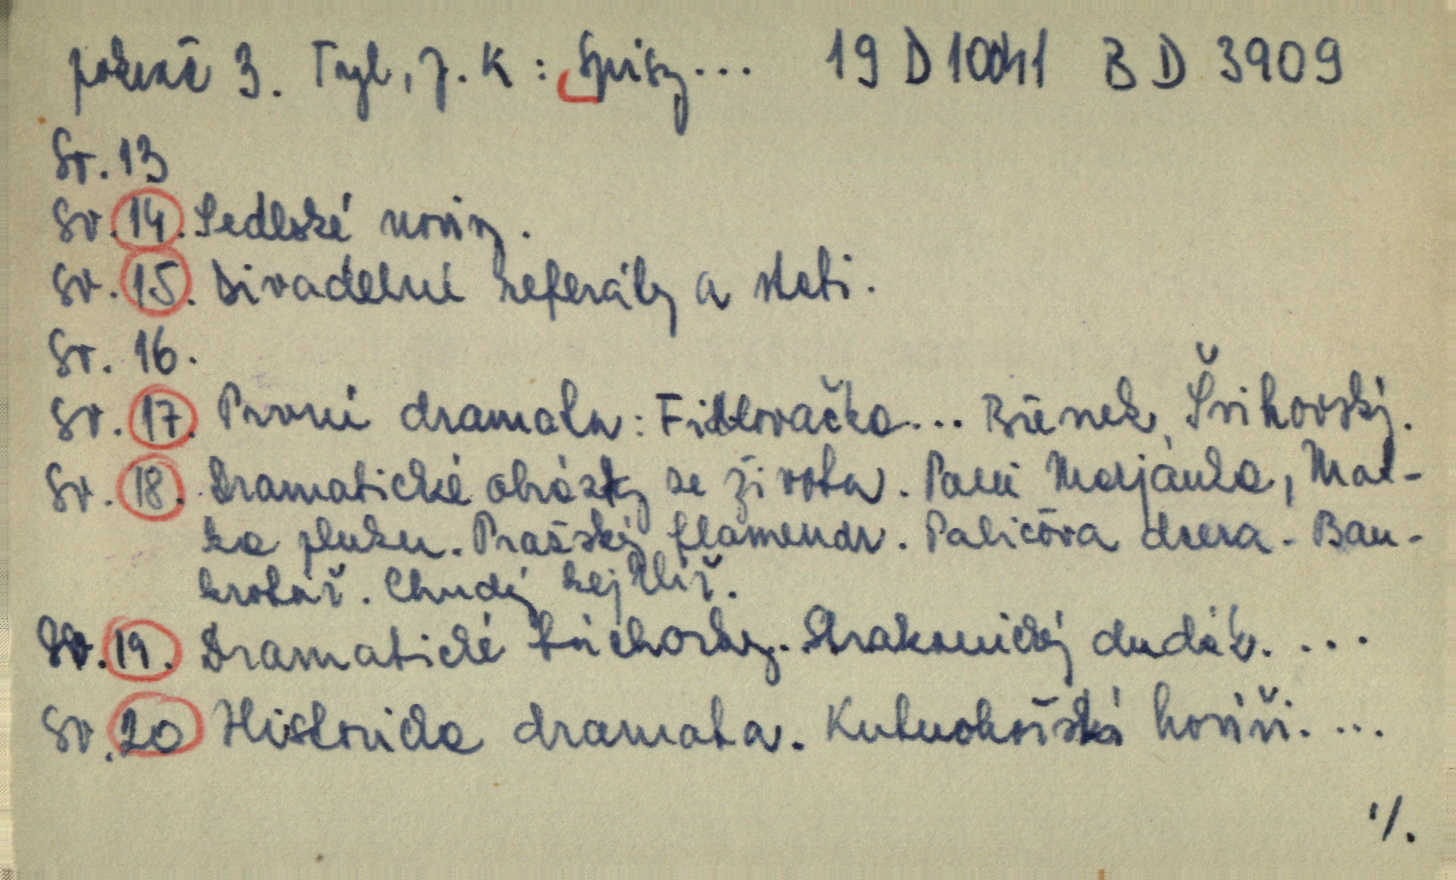 pokrač 3. Tyl, J. K: Spisy... 19 D 10041 BD 3909
Sv. 13
Sv. 14. Selské noviny.
Sv. 15. Divadelní referáty a stati.
Sv. 16.
Sv. 17. První dramata: Fidlovačka... Brunek, Švihovský.
Sv. 18. Dramatické obrázky ze života. Paní Marjánka, Mat-
ka pluku. Pražský flamendr. Paličova dcera. Ban-
krotář. Chudý kejklíř.
Sv. 19. Dramatické báchorky. Strakonický dudák. ...
Sv. 20 Historická dramata. Kutnohorští havíři. ...
·/.